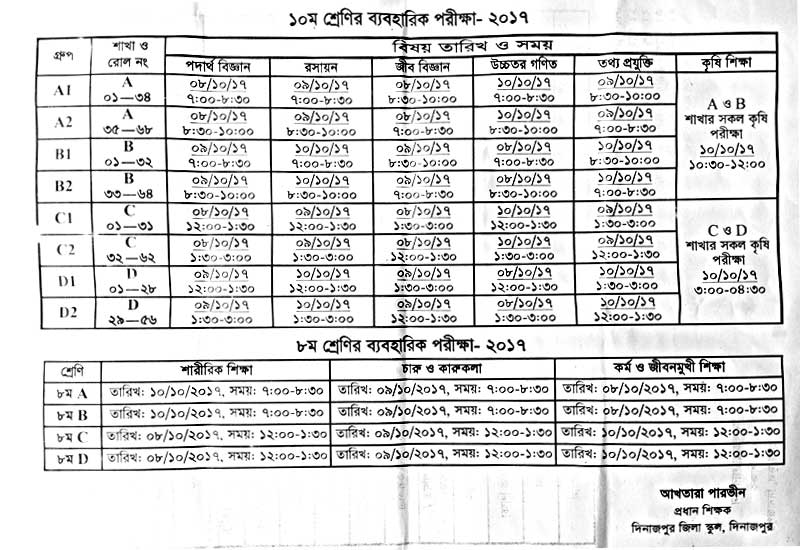 ১০ম শ্রেণির ব্যবহারিক পরীক্ষা- ২০১৭
গ্রুপ শাখা ও রোল নং বিষয় তারিখ ও সময়
পদার্থ বিজ্ঞান রসায়ন জীব বিজ্ঞান উচ্চতর গণিত তথ্য প্রযুক্তি কৃষি শিক্ষা
A1 A ০৮/১০/১৭ ০৯/১০/১৭ ০৮/১০/১৭ ১০/১০/১৭ ০৯/১০/১৭
০১—৩৪ ৭:০০-৮:৩০ ৭:০০-৮:৩০ ৮:৩০-১০:০০ ৭:০০-৮:৩০ ৮:৩০-১০:০০
A2 A ০৮/১০/১৭ ০৯/১০/১৭ ০৮/১০/১৭ ১০/১০/১৭ ০৯/১০/১৭
৩৫—৬৮ ৮:৩০-১০:০০ ৮:৩০-১০:০০ ৭:০০-৮:৩০ ৮:৩০-১০:০০ ৭:০০-৮:৩০
B1 B ০৯/১০/১৭ ১০/১০/১৭ ০৯/১০/১৭ ০৮/১০/১৭ ১০/১০/১৭
০১—৩২ ৭:০০-৮:৩০ ৭:০০-৮:৩০ ৮:৩০-১০:০০ ৭:০০-৮:৩০ ৮:৩০-১০:০০
B2 B ০৯/১০/১৭ ১০/১০/১৭ ০৯/১০/১৭ ০৮/১০/১৭ ১০/১০/১৭
৩৩—৬৪ ৮:৩০-১০:০০ ৮:৩০-১০:০০ ৭:০০-৮:৩০ ৮:৩০-১০:০০ ৭:০০-৮:৩০
A ও B
শাখার সকল কৃষি
পরীক্ষা
১০/১০/১৭
১০:৩০-১২:০০
C1 C ০৮/১০/১৭ ০৯/১০/১৭ ০৮/১০/১৭ ১০/১০/১৭ ০৯/১০/১৭
০১—৩১ ১২:০০-১:৩০ ১২:০০-১:৩০ ১:৩০-৩:০০ ১২:০০-১:৩০ ১:৩০-৩:০০
C2 C ০৮/১০/১৭ ০৯/১০/১৭ ০৮/১০/১৭ ১০/১০/১৭ ০৯/১০/১৭
৩২—৬২ ১:৩০-৩:০০ ১:৩০-৩:০০ ১২:০০-১:৩০ ১:৩০-৩:০০ ১২:০০-১:৩০
D1 D ০৯/১০/১৭ ১০/১০/১৭ ০৯/১০/১৭ ০৮/১০/১৭ ১০/১০/১৭
০১—২৮ ১২:০০-১:৩০ ১২:০০-১:৩০ ১:৩০-৩:০০ ১২:০০-১:৩০ ১:৩০-৩:০০
D2 D ০৯/১০/১৭ ১০/১০/১৭ ০৯/১০/১৭ ০৮/১০/১৭ ১০/১০/১৭
২৯—৫৬ ১:৩০-৩:০০ ১:৩০-৩:০০ ১২:০০-১:৩০ ১:৩০-৩:০০ ১২:০০-১:৩০
C ও D
শাখার সকল কৃষি
পরীক্ষা
১০/১০/১৭
৩:০০-০৪:৩০
৮ম শ্রেণির ব্যবহারিক পরীক্ষা- ২০১৭
শ্রেণি শারীরিক শিক্ষা চারু ও কারুকলা কর্ম ও জীবনমুখী শিক্ষা
৮ম A তারিখ: ১০/১০/২০১৭, সময়: ৭:০০-৮:৩০ তারিখ: ০৯/১০/২০১৭, সময়: ৭:০০-৮:৩০ তারিখ: ০৮/১০/২০১৭, সময়: ৭:০০-৮:৩০
৮ম B তারিখ: ১০/১০/২০১৭, সময়: ৭:০০-৮:৩০ তারিখ: ০৯/১০/২০১৭, সময়: ৭:০০-৮:৩০ তারিখ: ০৮/১০/২০১৭, সময়: ৭:০০-৮:৩০
৮ম C তারিখ: ০৮/১০/২০১৭, সময়: ১২:০০-১:৩০ তারিখ: ০৯/১০/২০১৭, সময়: ১২:০০-১:৩০ তারিখ: ১০/১০/২০১৭, সময়: ১২:০০-১:৩০
৮ম D তারিখ: ০৮/১০/২০১৭, সময়: ১২:০০-১:৩০ তারিখ: ০৯/১০/২০১৭, সময়: ১২:০০-১:৩০ তারিখ: ১০/১০/২০১৭, সময়: ১২:০০-১:৩০
আখতারা পারভীন
প্রধান শিক্ষক
দিনাজপুর জিলা স্কুল, দিনাজপুর